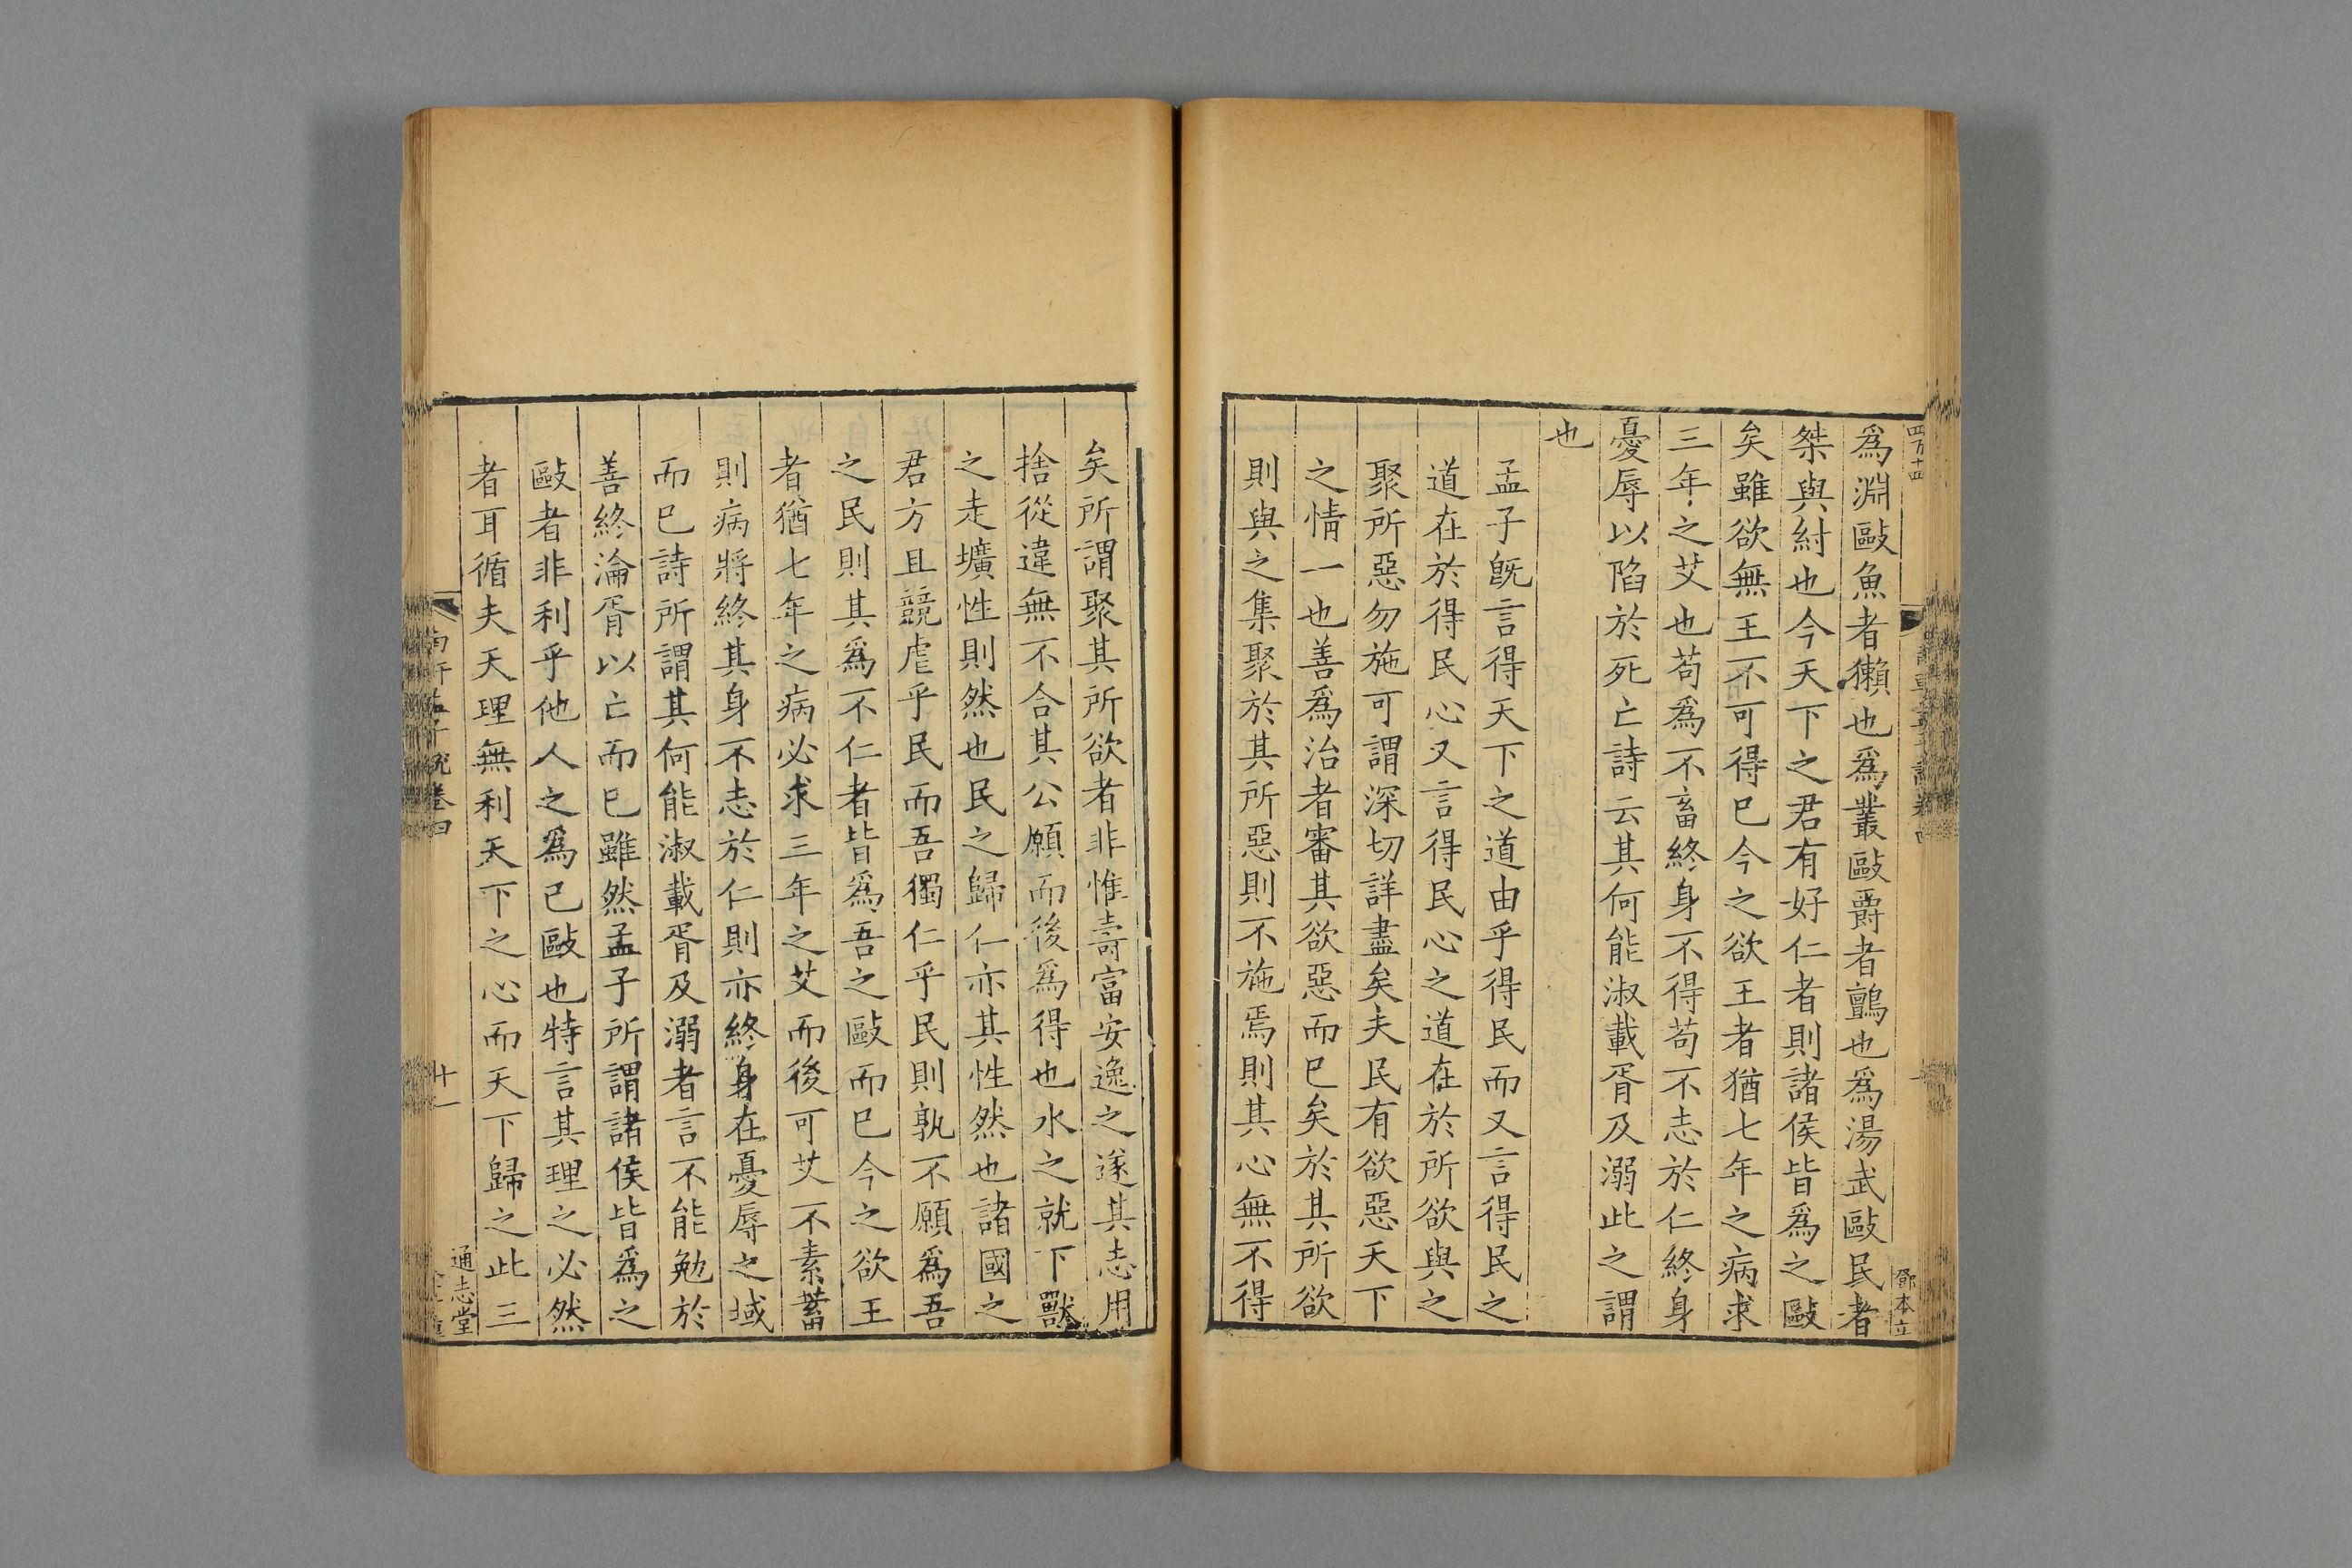 為淵敺魚者獺也為叢敺爵者鸇也為湯武敺民者
桀與紂也今天下之君有好仁者則諸侯皆為之敺
矣雖欲無王不可得已今之欲王者猶七年之病求
三年之艾也苟為不畜終身不得苟不志於仁終身
憂辱以陷於死亡詩云其何能淑載胥及溺此之謂
也
孟子旣言得天下之道由乎得民而又言得民之
道在於得民心又言得民心之道在於所欲與之
聚所惡勿施可謂深切詳盡矣夫民有欲惡天下
之情一也善為治者審其欲惡而已矣於其所欲
則與之集聚於其所惡則不施焉則其心無不得
矣所謂聚其所欲者非惟壽富安逸之遂其志用
捨從違無不合其公願而後為得也水之就下獸
之走壙性則然也民之歸仁亦其性然也諸國之
君方且競虐乎民而吾獨仁乎民則孰不願為吾
之民則其為不仁者皆為吾之敺而已今之欲王
者猶七年之病必求三年之艾而後可艾不素蓄
則病將終其身不志於仁則亦終身在憂辱之域
而已詩所謂其何能淑載胥及溺者言不能勉於
善終淪胥以亡而已雖然孟子所謂諸侯皆為之
敺者非利乎他人之為己敺也特言其理之必然
者耳循夫天理無利天下之心而天下歸之此三
四百十四
鄧本立
南軒孟子說卷四
十一
通志堂